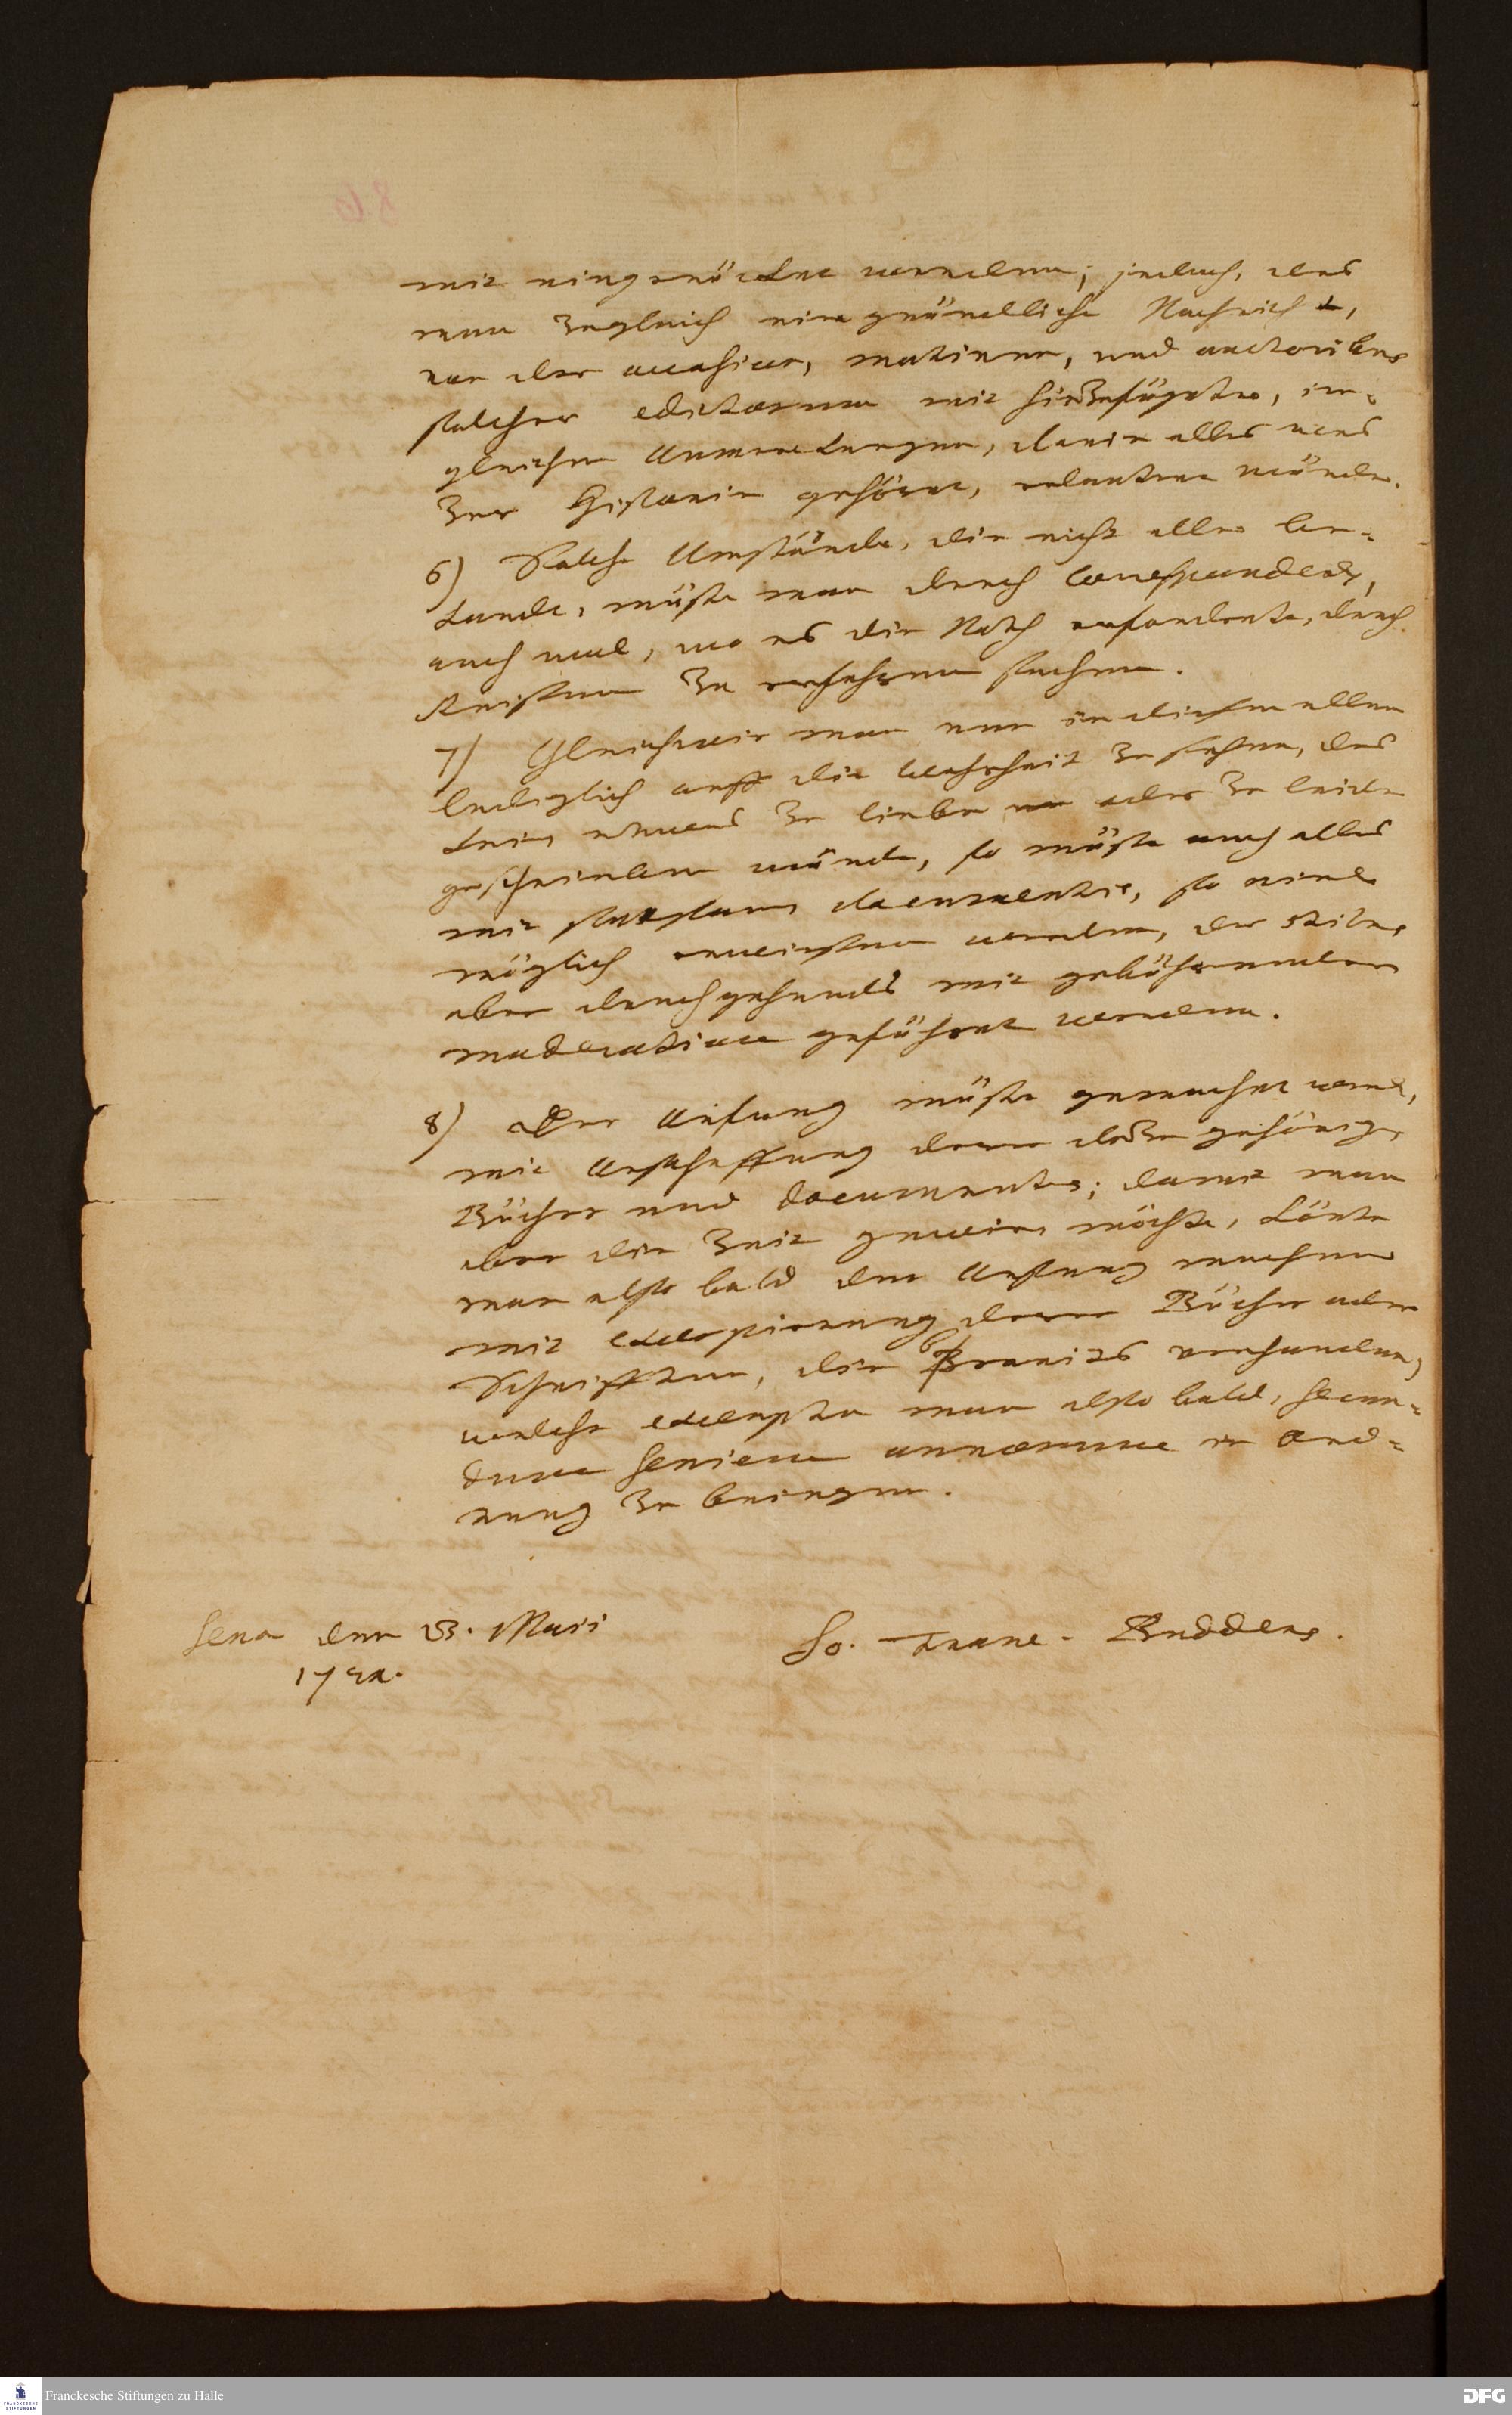 mit eingerücket werden; jedoch, das
man zugleich eine gründliche Nachricht,
von der occasion, motiven, und autoribus
solcher edictorum mit hinzufügete, im-
gleichen Anmerckungen, darin alles was
zur Historie gehöret, erleutert würde.
6) Solche Umstände, die nicht allen be-
kandt, müste man durch correspondence,
auch wol, wo es die Noth erforderte, durch
Reisen zu erfahren suchen.
7) Gleichwie man nun in diesem allen
lediglich auff die Wahrheit zu sehen, das
kein etwas zu liebe oder zu leide
geschrieben würde, so müste auch alles
mit documentis, so viel
möglich erwiesen werden, der stilus
aber durchgehends mit gebührender
moderation geführet werden.
8) Der Anfang müste gemachet werd,
mit Anschaffung derer dazu gehörige
Bücher und documenten; damit man
aber die Zeit gewinn möchte, könte
man also bald den Anfang machen
mit excerpirung derer Bücher oder
Schrifften, die bereits vorhanden,
welche excerpta man also bald, secun-
dum seriem annorum in Ord-
nung zu bringen.
Jena den 3. Maii
Jo. Franc. Buddeus.